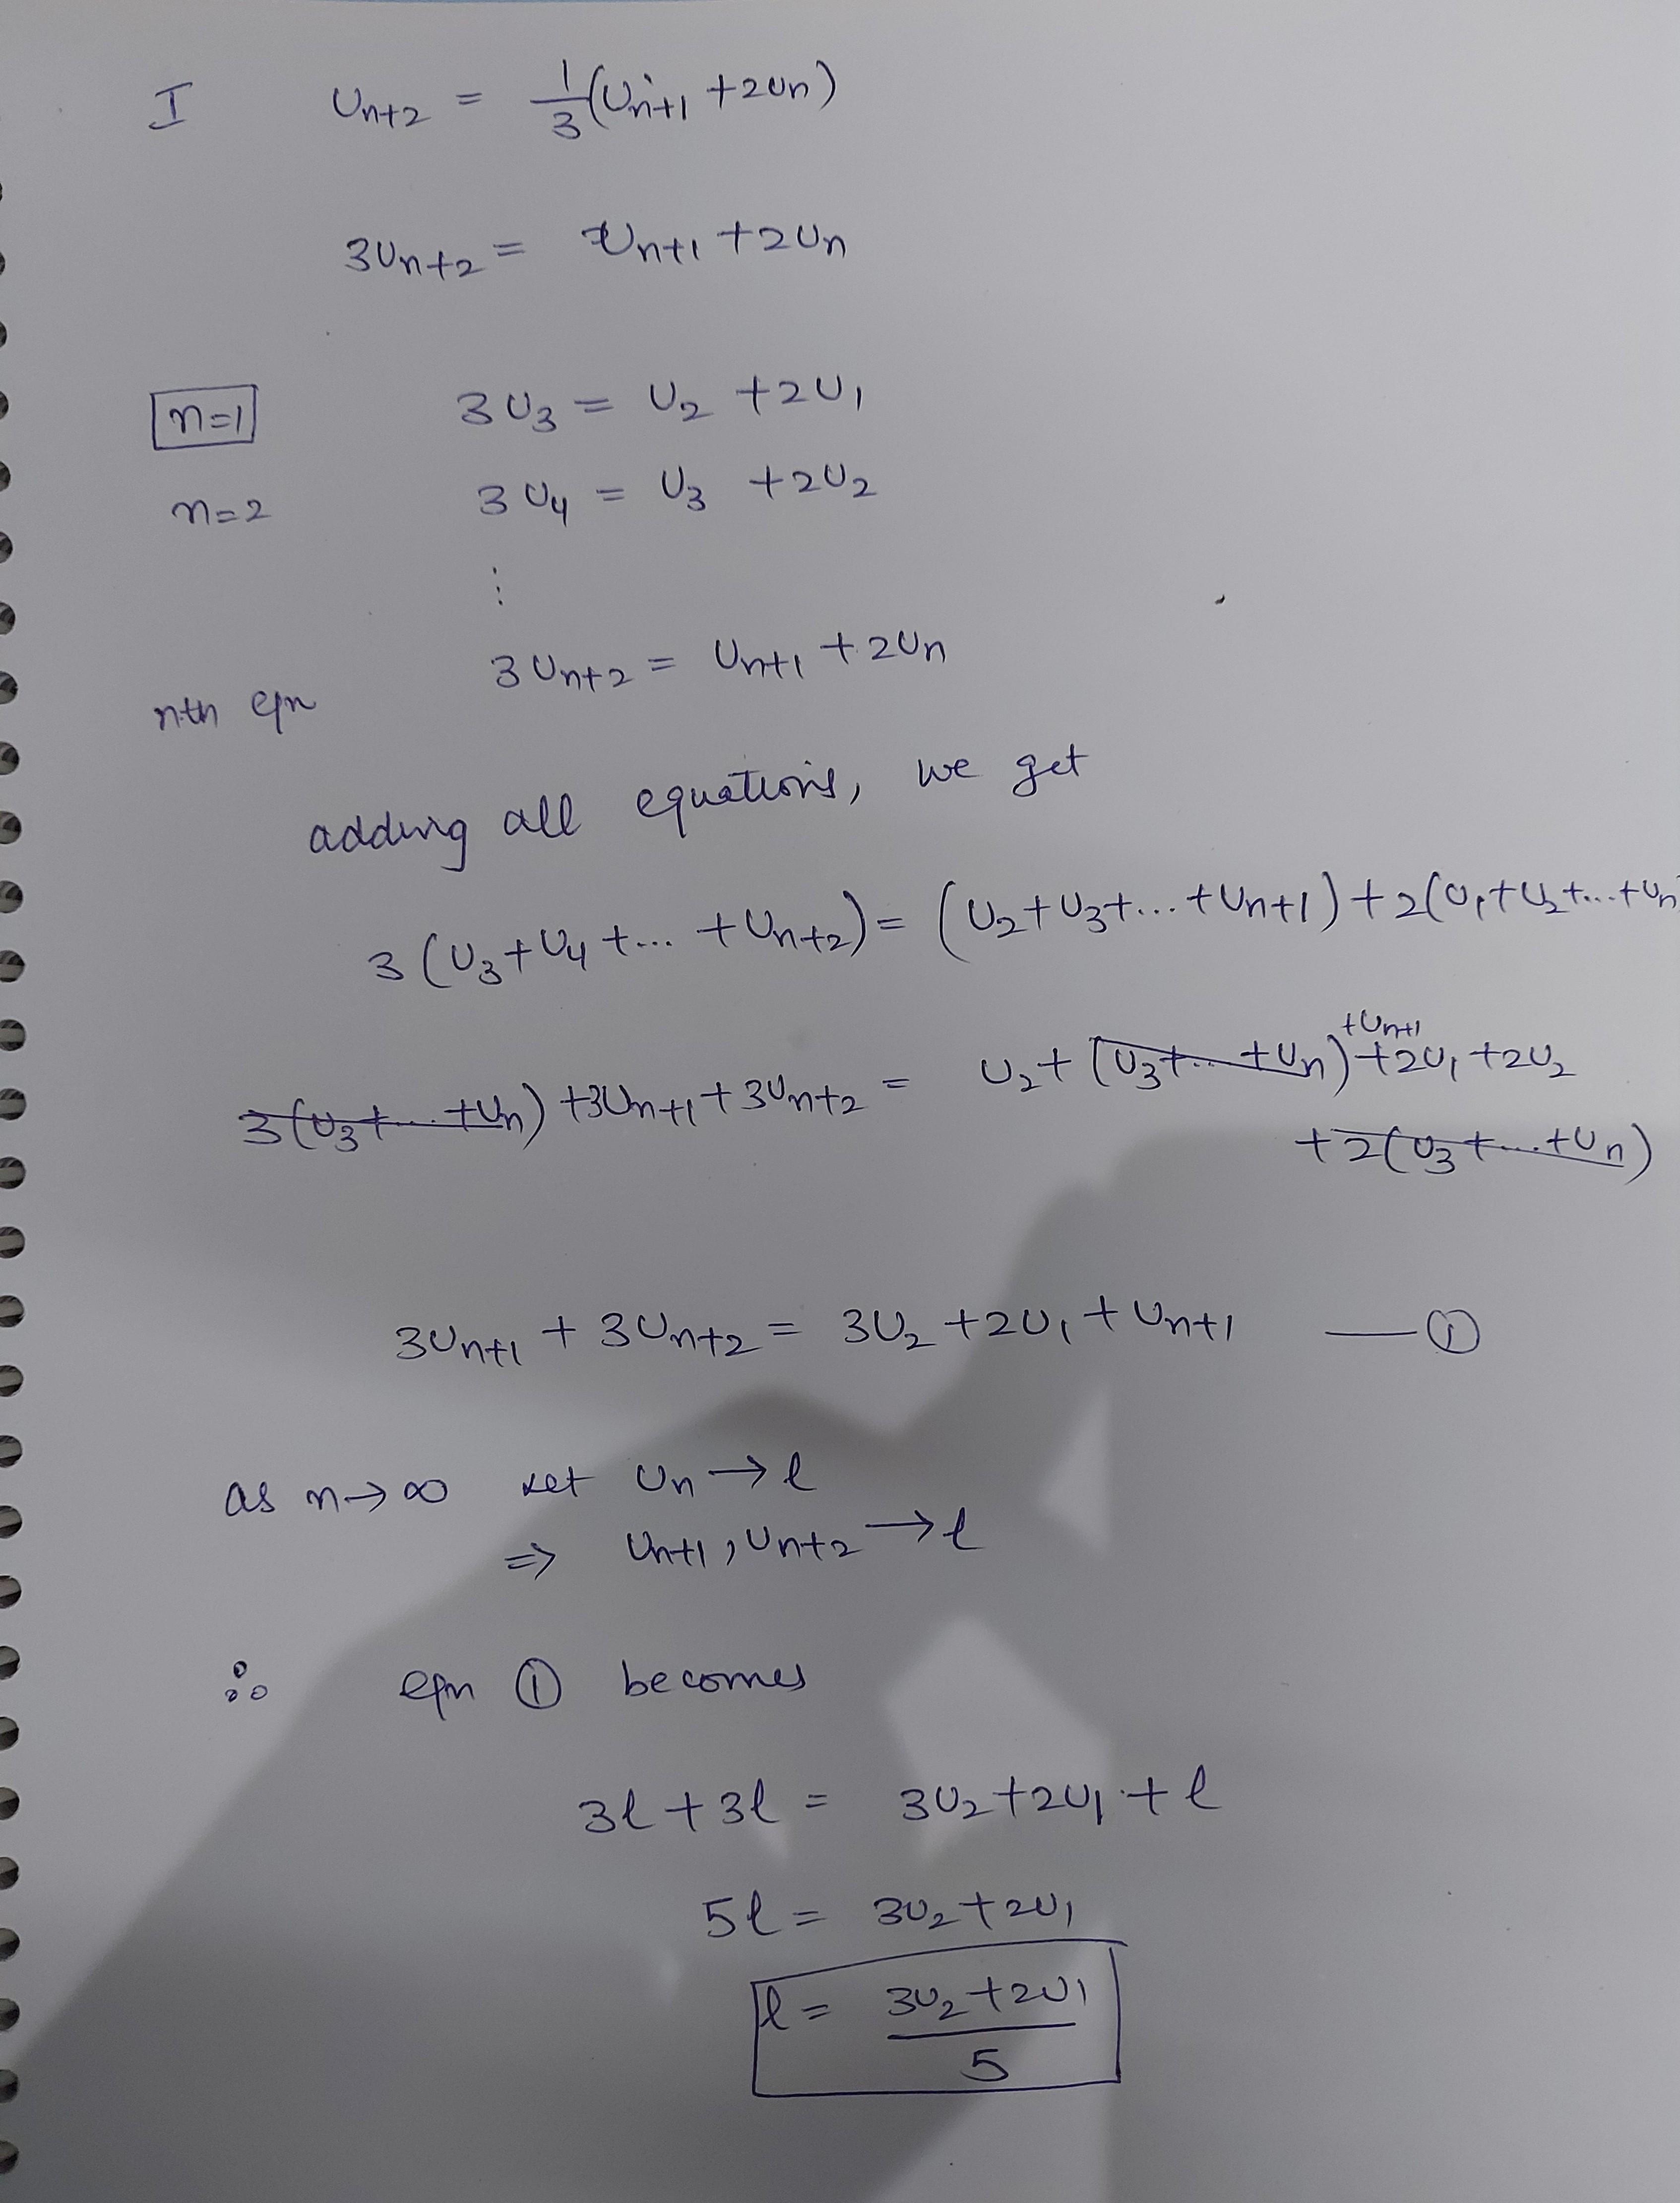 I Un+2 = 1/3 (Un+1 + 2Un)
3Un+2 = Un+1 + 2Un
n=1 3U3 = U2 + 2U1
n=2 3U4 = U3 + 2U2
⋮
nth eqn 3Un+2 = Un+1 + 2Un
adding all equations, we get
3(U3+U4+... +Un+2) = (U2+U3+...+Un+1)+2(U1+U2+...+Un
+Un+1
3(U3+...+Un)+3Un+1+3Un+2 = U2+(U3+...+Un)+2U1+2U2
+2(U3+...+Un)
3Un+1 + 3Un+2 = 3U2+2U1+Un+1 —①
as n→∞ let Un→l
⇒ Un+1, Un+2→l
∴ eqn ① becomes
3l+3l = 3U2+2U1+l
5l = 3U2+2U1
l = 3U2+2U1
5